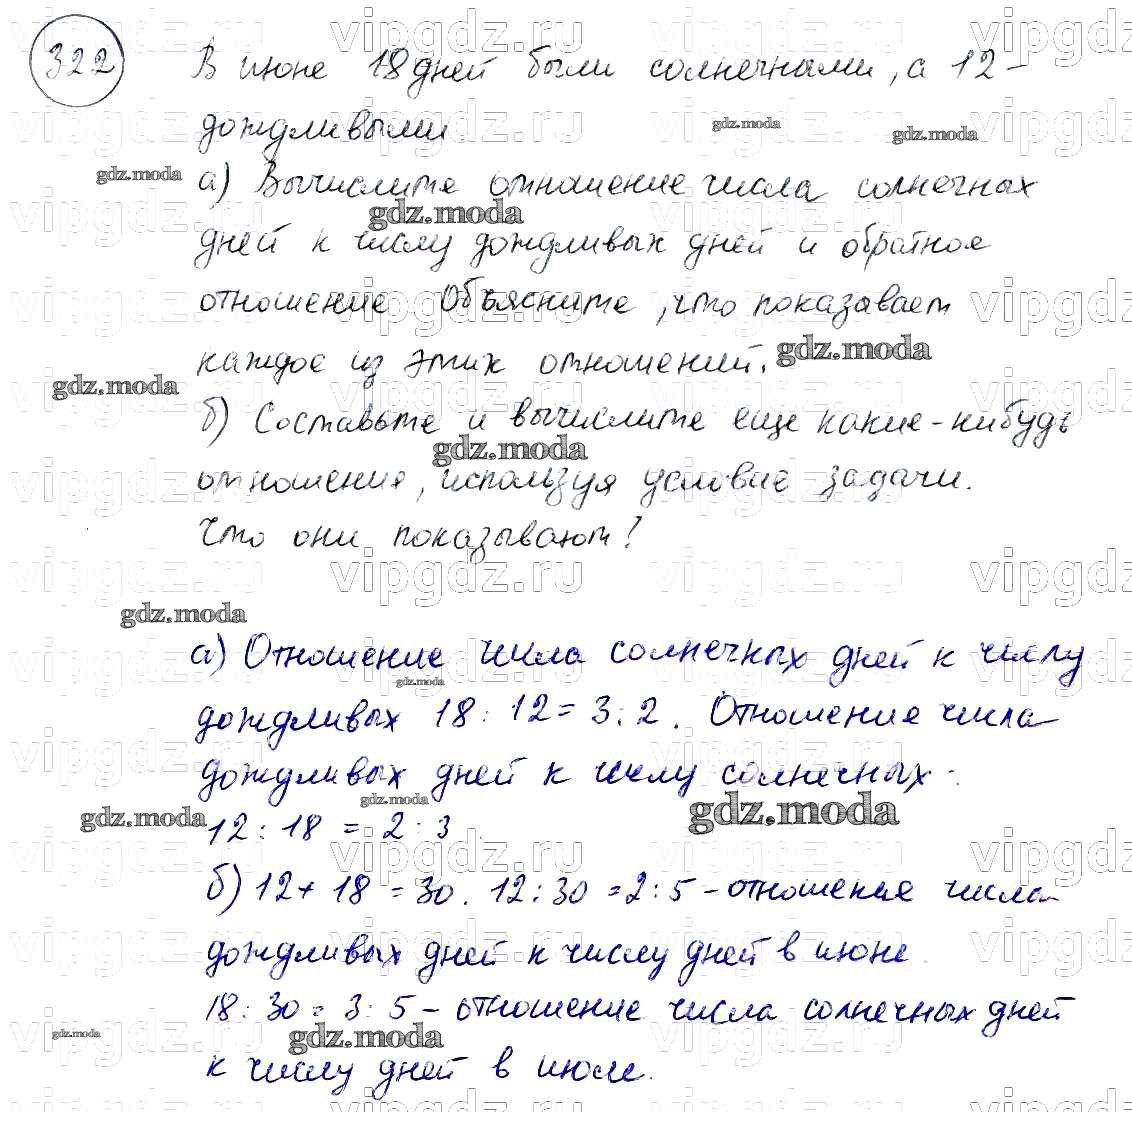 322
В июне 18 дней были солнечными, а 12 -
дождливыми
а) Вычислите отношение числа солнечных
дней к числу дождливых дней и обратное
отношение Объясните, что показывает
каждое из этих отношений.
б) Составьте и вычислите еще какие-нибудь
отношения, используя условие задачи.
Что они показывают?
а) Отношение числа солнечных дней к числу
дождливых 18 : 12 = 3 : 2. Отношение числа
дождливых дней к числу солнечных -
12 : 18 = 2 : 3.
б) 12 + 18 = 30. 12 : 30 = 2 : 5 - отношение числа
дождливых дней к числу дней в июне.
18 : 30 = 3 : 5 - отношение числа солнечных дней
к числу дней в июле.
gdz.moda
vipgdz.ru